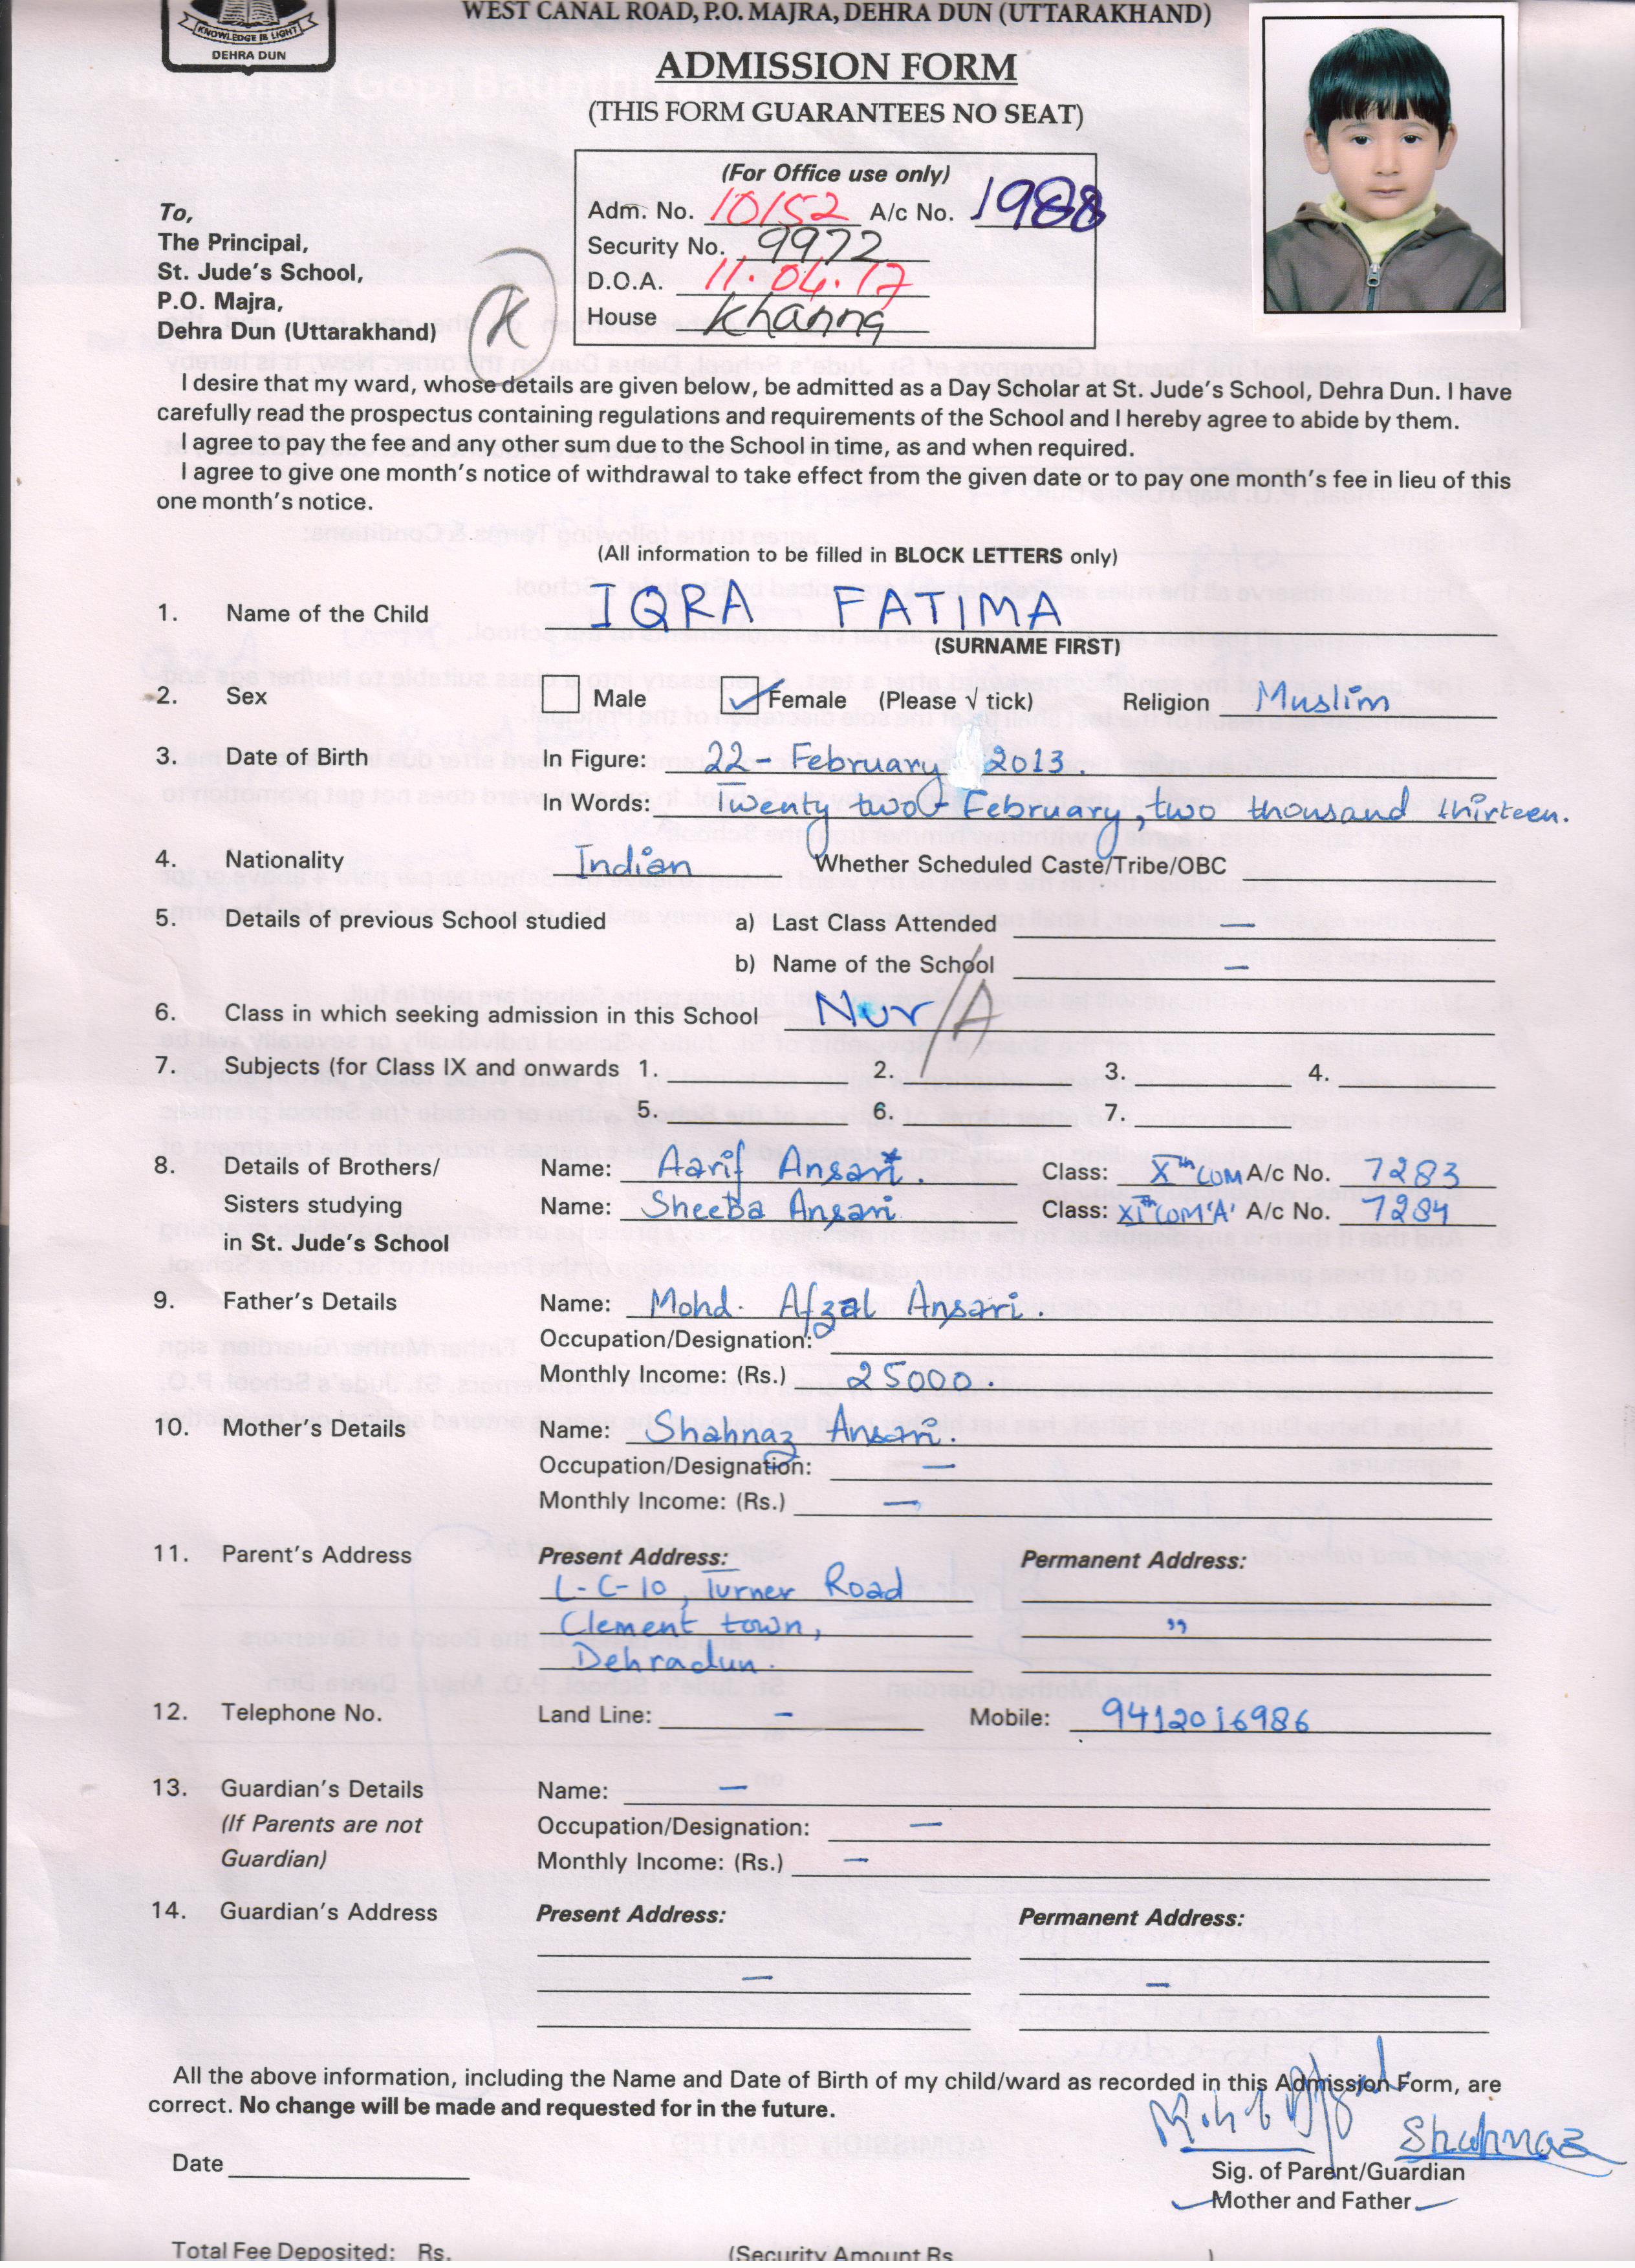 KNOWLEDGE IS LIGHT
DEHRA DUN
WEST CANAL ROAD, P.O. MAJRA, DEHRA DUN (UTTARAKHAND)
ADMISSION FORM
(THIS FORM GUARANTEES NO SEAT)
(For Office use only)
Adm. No. 10152 A/c No. 1988
Security No. 9972
D.O.A. 11.04.17
House Khanna
To,
The Principal,
St. Jude's School,
P.O. Majra,
Dehra Dun (Uttarakhand)
K
I desire that my ward, whose details are given below, be admitted as a Day Scholar at St. Jude's School, Dehra Dun. I have
carefully read the prospectus containing regulations and requirements of the School and I hereby agree to abide by them.
I agree to pay the fee and any other sum due to the School in time, as and when required.
I agree to give one month's notice of withdrawal to take effect from the given date or to pay one month's fee in lieu of this
one month's notice.
(All information to be filled in BLOCK LETTERS only)
1. Name of the Child IQRA FATIMA
(SURNAME FIRST)
2. Sex Male Female (Please √ tick) Religion Muslim
3. Date of Birth In Figure: 22 - February 2013.
In Words: Twenty two - February, two thousand thirteen.
4. Nationality Indian Whether Scheduled Caste/Tribe/OBC
5. Details of previous School studied a) Last Class Attended —
b) Name of the School —
6. Class in which seeking admission in this School Nur/A
7. Subjects (for Class IX and onwards 1. 2. 3. 4.
5. 6. 7.
8. Details of Brothers/ Name: Aarif Ansari. Class: Xth COM A/c No. 7283
Sisters studying Name: Sheeba Ansari Class: XIth COM 'A' A/c No. 7284
in St. Jude's School
9. Father's Details Name: Mohd. Afzal Ansari.
Occupation/Designation:
Monthly Income: (Rs.) 25000.
10. Mother's Details Name: Shahnaz Ansari.
Occupation/Designation: —
Monthly Income: (Rs.) —
11. Parent's Address Present Address: Permanent Address:
L-C-10, Turner Road
Clement town, "
Dehradun.
12. Telephone No. Land Line: — Mobile: 9412016986
13. Guardian's Details Name: —
(If Parents are not Occupation/Designation: —
Guardian) Monthly Income: (Rs.) —
14. Guardian's Address Present Address: Permanent Address:
— —
All the above information, including the Name and Date of Birth of my child/ward as recorded in this Admission Form, are
correct. No change will be made and requested for in the future.
Shahnaz
Date
Sig. of Parent/Guardian
Mother and Father
Total Fee Deposited: Rs. (Security Amount Rs )